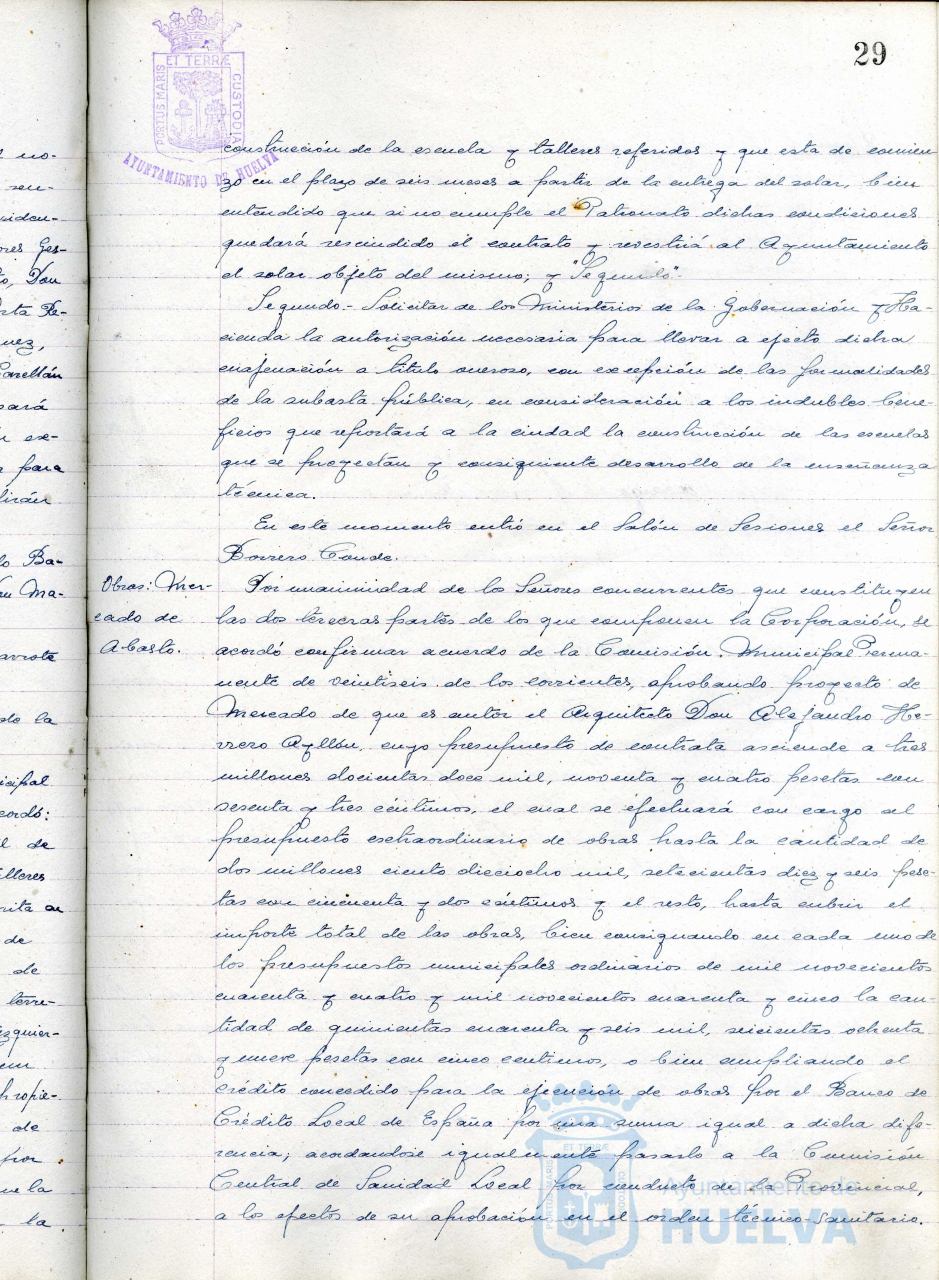 29
PORTUS MARIS ET TERRÆ CUSTODIA
AYUNTAMIENTO DE HUELVA
construcción de la escuela y talleres referidos y que esta de comien
zo en el plazo de seis meses a partir de la entrega del solar, bien
entendido que si no cumple el Patronato dichas condiciones
quedará rescindido el contrato y revertirá al Ayuntamiento
el solar objeto del mismo; y "Segundo".
Segundo.- Solicitar de los Ministerios de la Gobernación y Ha-
cienda la autorización necesaria para llevar a efecto dicha
enajenación a título oneroso, con excepción de las formalidades
de la subasta pública, en consideración a los indubles bene-
ficios que reportará a la ciudad la construcción de las escuelas
que se proyectán y consiguiente desarrollo de la enseñanza
técnica.
En este momento entró en el Salón de Sesiones el Señor
Borrero Conde.
Obras: Mer-
cado de
Abasto.
Por unanimidad de los Señores concurrentes que constituyen
las dos terceras partes de los que componen la Corporación, se
acordó confirmar acuerdo de la Comisión Municipal Perma-
nente de veintiseis de los corrientes, aprobando proyecto de
Mercado de que es autor el Arquitecto Don Alejandro He-
rrero Ayllón, cuyo presupuesto de contrata asciende a tres
millones docientas doce mil, noventa y cuatro pesetas con
sesenta y tres céntimos, el cual se efectuará con cargo al
presupuesto extraordinario de obras hasta la cantidad de
dos millones ciento dieciocho mil, setecientas diez y seis pese-
tas con cincuenta y dos céntimos y el resto, hasta cubrir el
importe total de las obras, bien consignando en cada uno de
los presupuestos municipales ordinarios de mil novecientos
cuarenta y cuatro y mil novecientos cuarenta y cinco la can-
tidad de quinientas cuarenta y seis mil, seicientas ochenta
y nueve pesetas con cinco centimos, o bien ampliando el
crédito concedido para la ejecución de obras por el Banco de
Crédito Local de España por una suma igual a dicha dife-
rencia; acordandose igualmente pasarlo a la Comisión
Central de Sanidad Local por conducto de la Provincial,
a los efectos de su aprobación en el orden técnico-sanitario.
Ayuntamiento de
HUELVA